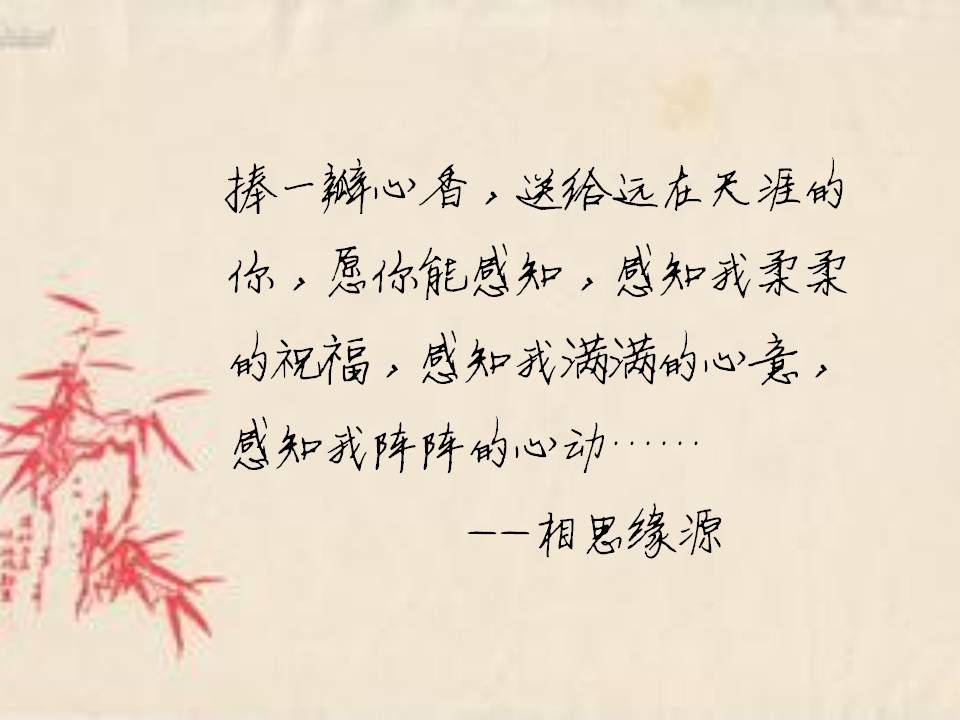 捧一瓣心香，送给远在天涯的
你，愿你能感知，感知我柔柔
的祝福，感知我满满的心意，
感知我阵阵的心动……
——相思缘源